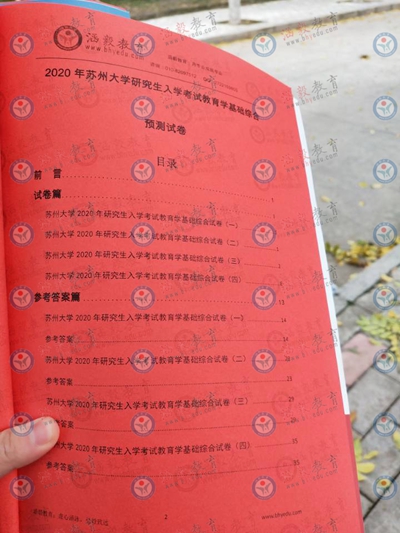 涵毅教育
2020 年苏州大学研究生入学考试教育学基础综合
预测试卷
目录
前 言
试卷篇 1
苏州大学 2020 年研究生入学考试教育学基础综合试卷（一）
苏州大学 2020 年研究生入学考试教育学基础综合试卷（二）
苏州大学 2020 年研究生入学考试教育学基础综合试卷（三）
苏州大学 2020 年研究生入学考试教育学基础综合试卷（四）
参考答案篇 13
苏州大学 2020 年研究生入学考试教育学基础综合试卷（一） 14
参考答案 14
苏州大学 2020 年研究生入学考试教育学基础综合试卷（二）
参考答案
苏州大学 2020 年研究生入学考试教育学基础综合试卷（三）
参考答案
苏州大学 2020 年研究生入学考试教育学基础综合试卷（四）
参考答案
2